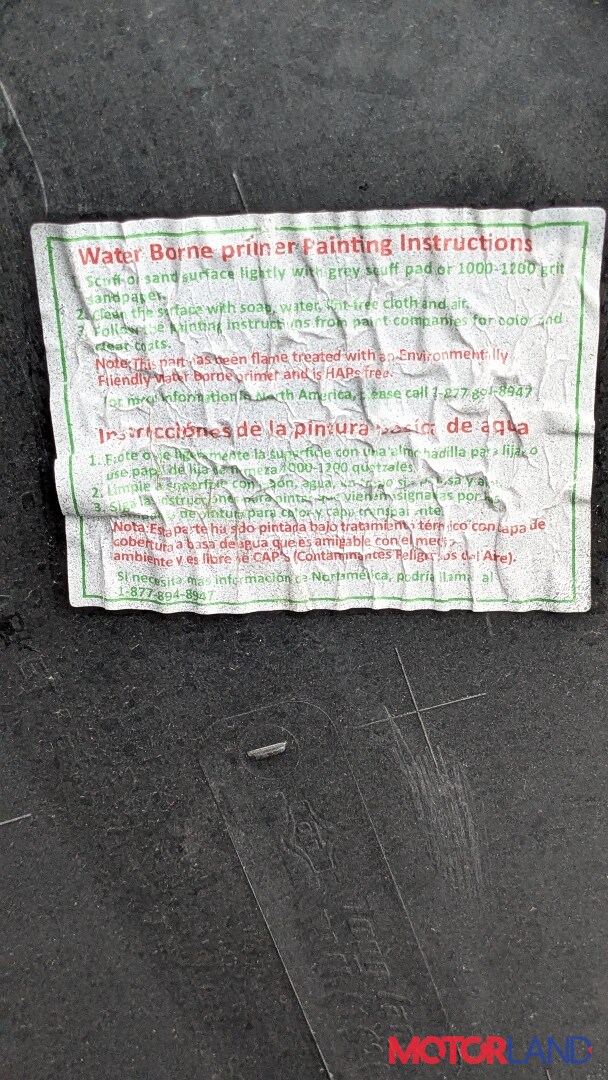 Water Borne primer Painting Instructions
1. Scuff or sand surface lightly with grey scuff pad or 1000-1200 grit
sandpaper.
2. Clean the surface with soap, water, lint-free cloth and air.
3. Follow the painting instructions from paint companies for color and
clear coats.
Note: This part has been flame treated with an Environmentally
Friendly Water Borne primer and is HAPs free.
For more information in North America, please call 1-877-894-8947
Instrucciónes de la pintura de agua
1. Frote o lije ligeramente la superficie con una almohadilla para lijar o
use papel de lija 1000-1200
2. Limpie la superficie con jabón, agua, y
3. instrucciones para pintar vienen
de pintura para color y capa transparente.
Nota: Esta parte ha sido pintada bajo tratamiento térmico con capa de
cobertura a basa de agua que es amigable con el medio
ambiente y es libre se CAP's (Contaminantes Peligrosos del Aire).
Si necesita mas información Nortamélica, podría llamar al
1-877-894-8947
MOTORLAND